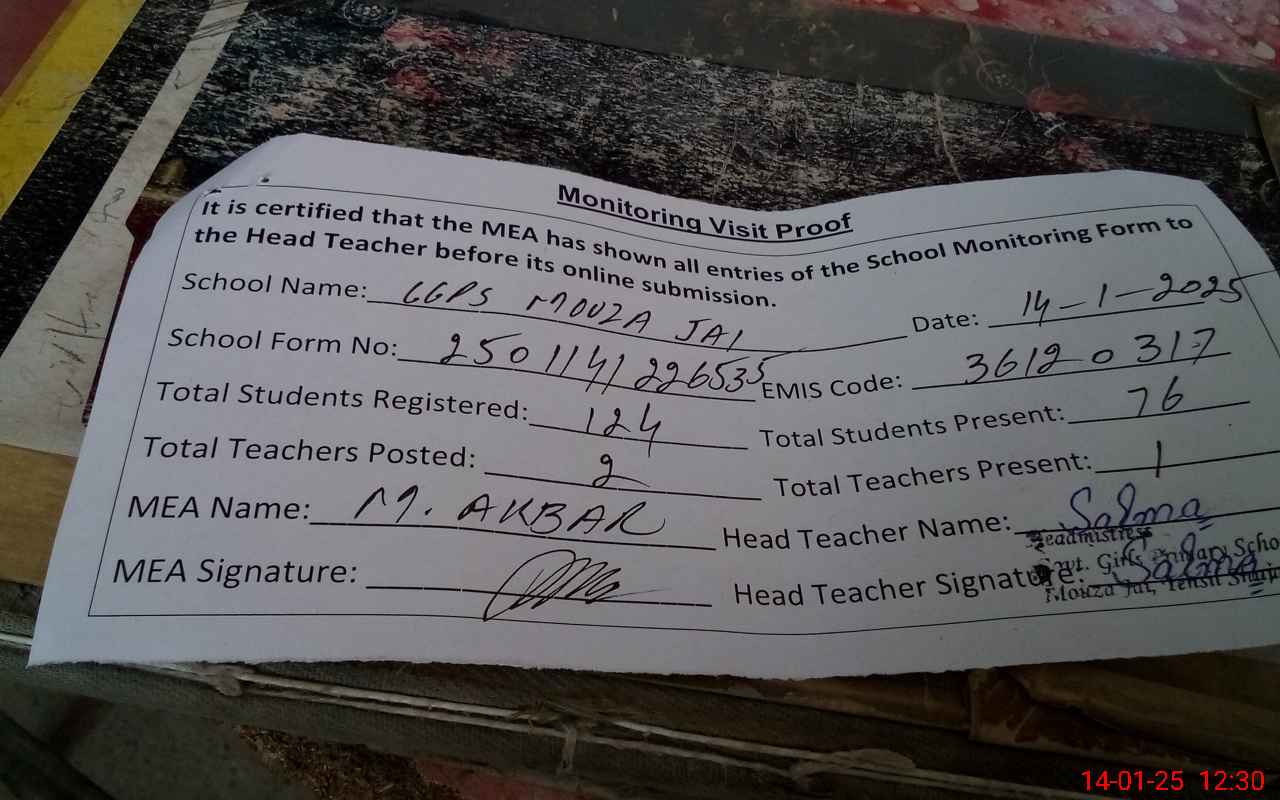 Monitoring Visit Proof
It is certified that the MEA has shown all entries of the School Monitoring Form to
the Head Teacher before its online submission.
School Name: GGPS MOUZA JAI Date: 14-1-2025
School Form No: 2501141226535 EMIS Code: 36120317
Total Students Registered: 124 Total Students Present: 76
Total Teachers Posted: 2 Total Teachers Present: 1
MEA Name: M. AKBAR Head Teacher Name: Salma
Headmistress
MEA Signature: Head Teacher Signature: Salma
Govt. Girls Primary Scho
Mouza Jai, Tehsil
14-01-25 12:30